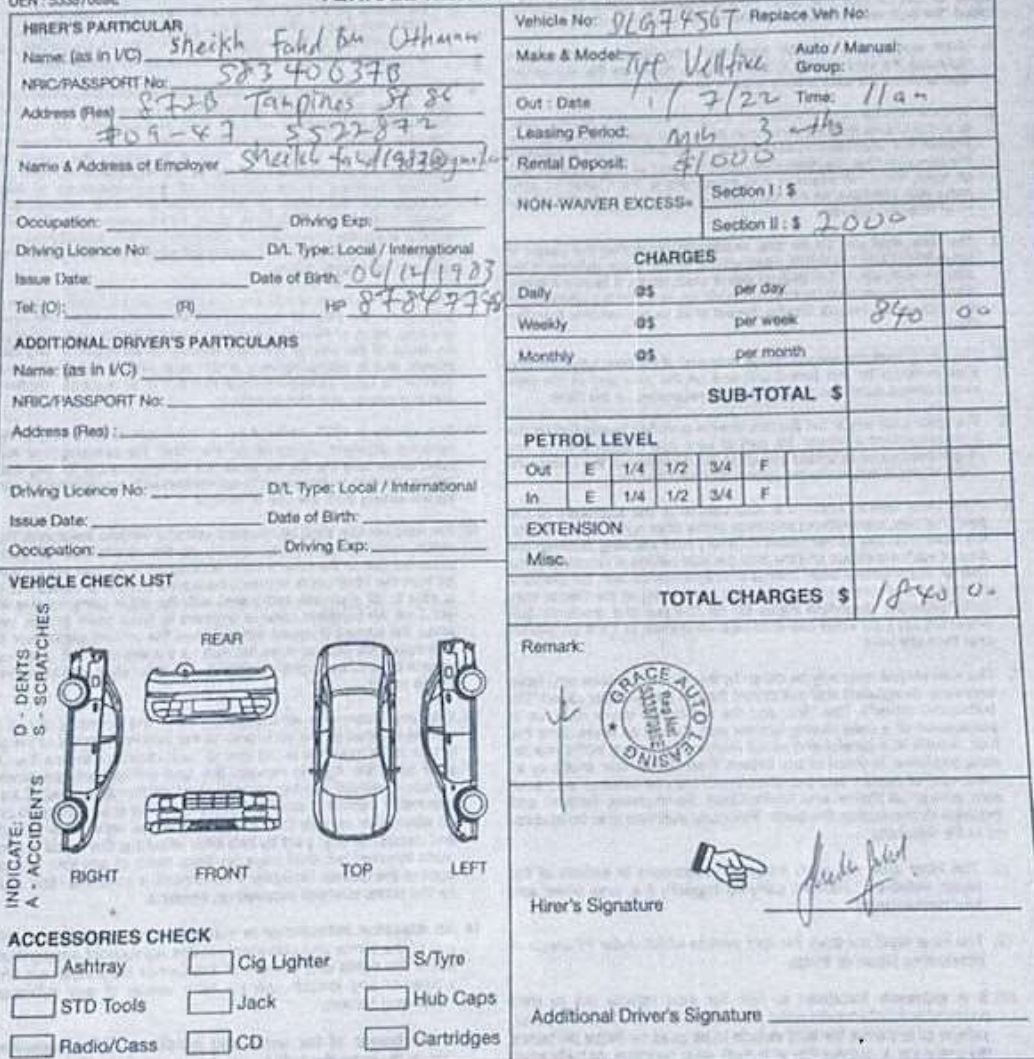 HIRER'S PARTICULAR
Name: (as in I/C) Sheikh Fahd Bin Othman
NRIC/PASSPORT No: S8340637B
Address (Res) 872B Tampines St 86
#09-47 S522872
Name & Address of Employer Sheikh fahd1983@gmail.com
Occupation: Driving Exp:
Driving Licence No: D/L Type: Local / International
Issue Date: Date of Birth: 06/12/1983
Tel: (O): (R) HP
ADDITIONAL DRIVER'S PARTICULARS
Name: (as in I/C)
NRIC/PASSPORT No:
Address (Res) :
Driving Licence No: D/L Type: Local / International
Issue Date: Date of Birth:
Occupation: Driving Exp:
VEHICLE CHECK LIST
INDICATE: D - DENTS
A - ACCIDENTS S - SCRATCHES
REAR
RIGHT FRONT TOP LEFT
ACCESSORIES CHECK
Ashtray Cig Lighter S/Tyre
STD Tools Jack Hub Caps
Radio/Cass CD Cartridges
Vehicle No: SLG7456T Replace Veh No:
Make & Model: Vellfire Auto / Manual:
Group:
Out : Date 1/7/22 Time: 11am
Leasing Period: min 3 mths
Rental Deposit: $1000
NON-WAIVER EXCESS= Section I : $
Section II : $ 2000
CHARGES
Daily @$ per day
Weekly @$ per week 840 00
Monthly @$ per month
SUB-TOTAL $
PETROL LEVEL
Out E 1/4 1/2 3/4 F
In E 1/4 1/2 3/4 F
EXTENSION
Misc.
TOTAL CHARGES $ 1840 00
Remark:
GRACE AUTO LEASING
Hirer's Signature
Additional Driver's Signature